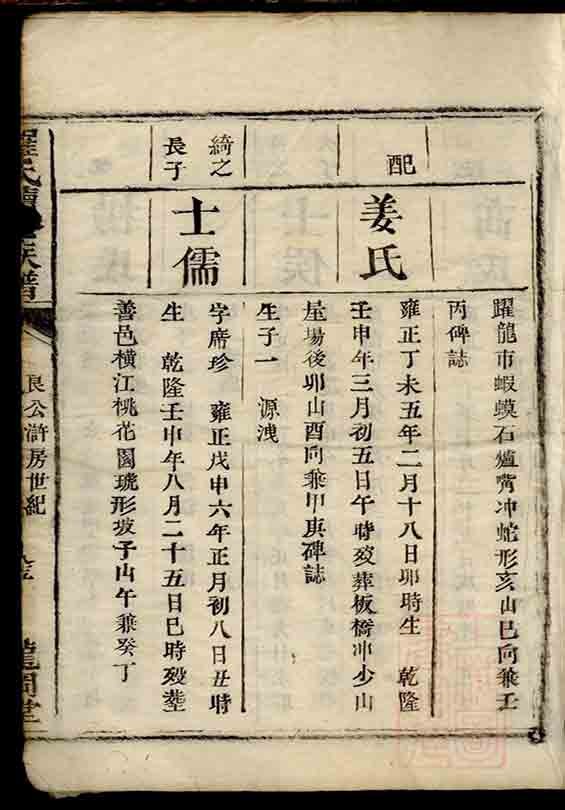 躍龍市蝦蟆石爐嘴冲蛇形亥山巳向兼壬
丙碑誌
配
姜氏
雍正丁未五年二月十八日卯時生 乾隆
壬申年三月初五日午時殁葬板橋冲少山
屋場後卯山酉向兼甲庚碑誌
生子一 源洩
綺之
長子
士儒
字席珍 雍正戊申六年正月初八日丑時
生 乾隆壬申年八月二十五日巳時殁塟
善邑横江桃花園琥形坡子山午兼癸丁
羅氏續族譜
良公滸房世紀